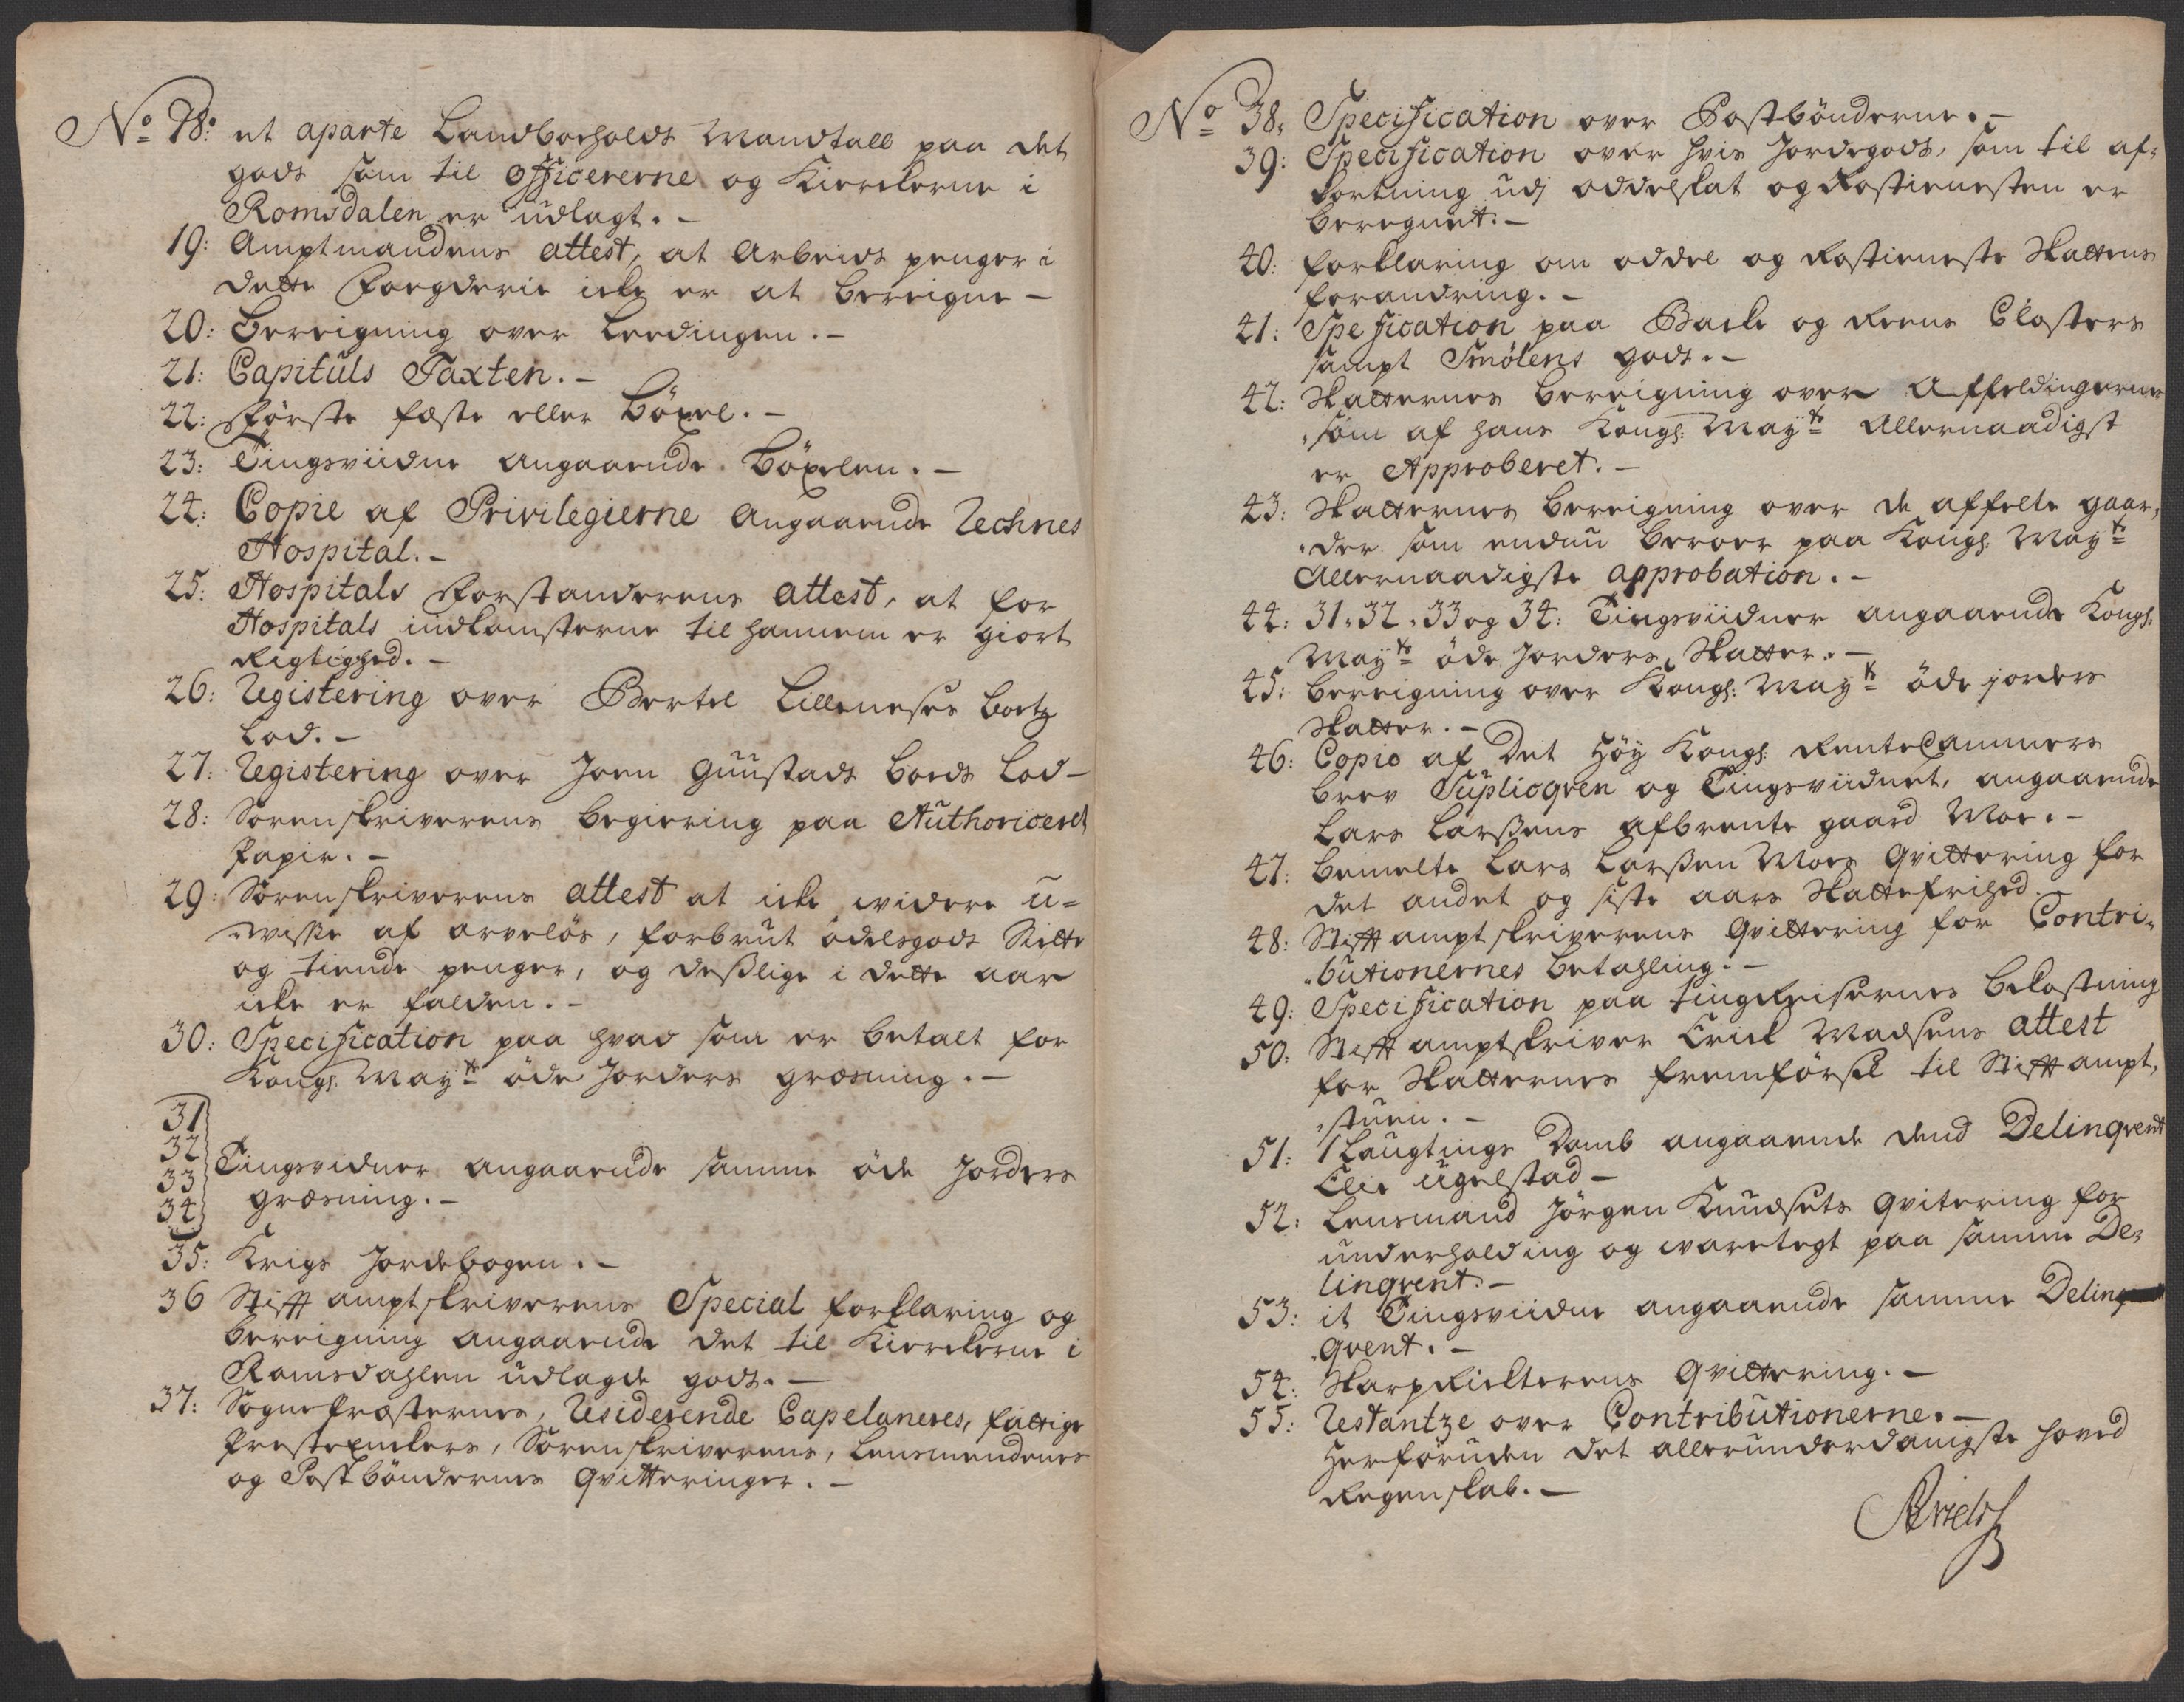 No 18: et aparte Landboeholds Mandtall paa det
gods som til Officererne og Kierckerne i
Romsdalen er udlagt. -
19: Amptmandens attest, at Arbeids penger i
dette Foegderie icke er at bereigne -
20: Bereigning over Leedingen. -
21: Capituls Taxten. -
22: Første fæste eller böxel. -
23: Tingsviidne angaaende Böxelen. -
24: Copie af Privilegierne angaaende Rechnes
Hospital. -
25: Hospitals Forstanderens attest, at for
Hospitals indkomsterne til hannem er giort
Rigtighed. -
26: Registering over Bertel Lilleneses boets
Lod. -
27: Registering over Joen Guustads boeds Lod -
28: Sorenskriverens begiering paa Authoriceret
Papir. -
29: Sorenskriverens attest at icke widere u-
wisse af arveløs, forbrut odelsgods Sicte
og tiende penger, og desslige i dette aar
icke er falden. -
30: Specification paa hvad som er betalt for
Kongl: Mayts öde Jorders græsning. -
31
32
33
34
Tingsvidner angaaende samme öde Jorders
græsning. -
35: Krigs Jordebogen. -
36 Stifft amptskriverens Special forklaring og
bereigning angaaende det til Kierckerne i
Romsdahlen udlagde gods. -
37: Sognepræsternes, Residerende Capelaneres, fattige
Præsteenckers, Sorenskriverens, Lensmendenes
og Postböndernes Qvitteringer. -
No 38: Specification over Postbönderne. -
39: Specification over hvis Jordegods, som til af-
kortning udj oddelskat og Rostienesten er
beregnet. -
40: forklaring om oddel og Rostieneste Skattens
forandring. -
41: Spesication paa Backe og Reens Closters
sampt Smölens gods. -
42: Skatternes bereigning over Affeldingerne
som af hans Kongl: Mayts Allernaadigst
er Approberet. -
43: Skatternes bereigning over de affelte gaar-
der som endnu beroer paa Kongl: Mayts
Allernaadigste approbation. -
44: 31, 32, 33 og 34: Tingsviidner angaaende Kongl:
Mayts öde Jorders Skatter. -
45: bereigning over Kongl: Mayts öde jorders
Skatter. -
46: Copie af Det Höy Kongl: RenteCammers
brev Supliqven og Tingsviidnet, angaaende
Lars Larssens afbrente gaard Moe. -
47: bemelte Lars Larssen Moes Qvittering for
det andet og siste aars Skattefrihed. -
48: Stifft amptskriverens Qvittering for Contri-
butionernes betahling. -
49: Specification paa tingReisernes bekostning
50: Stifft amptskriver Erick Madsens attest
for Skatternes fremförsel til Stifft ampt-
stuen. -
51: 1 Laugtings Domb angaaende dend Delinqvent
Elie Ugelstad -
52: Lensmand Jörgen Knudsets Qvitering for
underholding og waretegt paa samme De-
linqvent. -
53: it Tingsviidne angaaende samme Delin
qvent. -
54: SkarpRichterens Qvittering. -
55: Restantze over Contributionerne. -
Herforuden det allerunderdanigste hoved
Regenskab. -